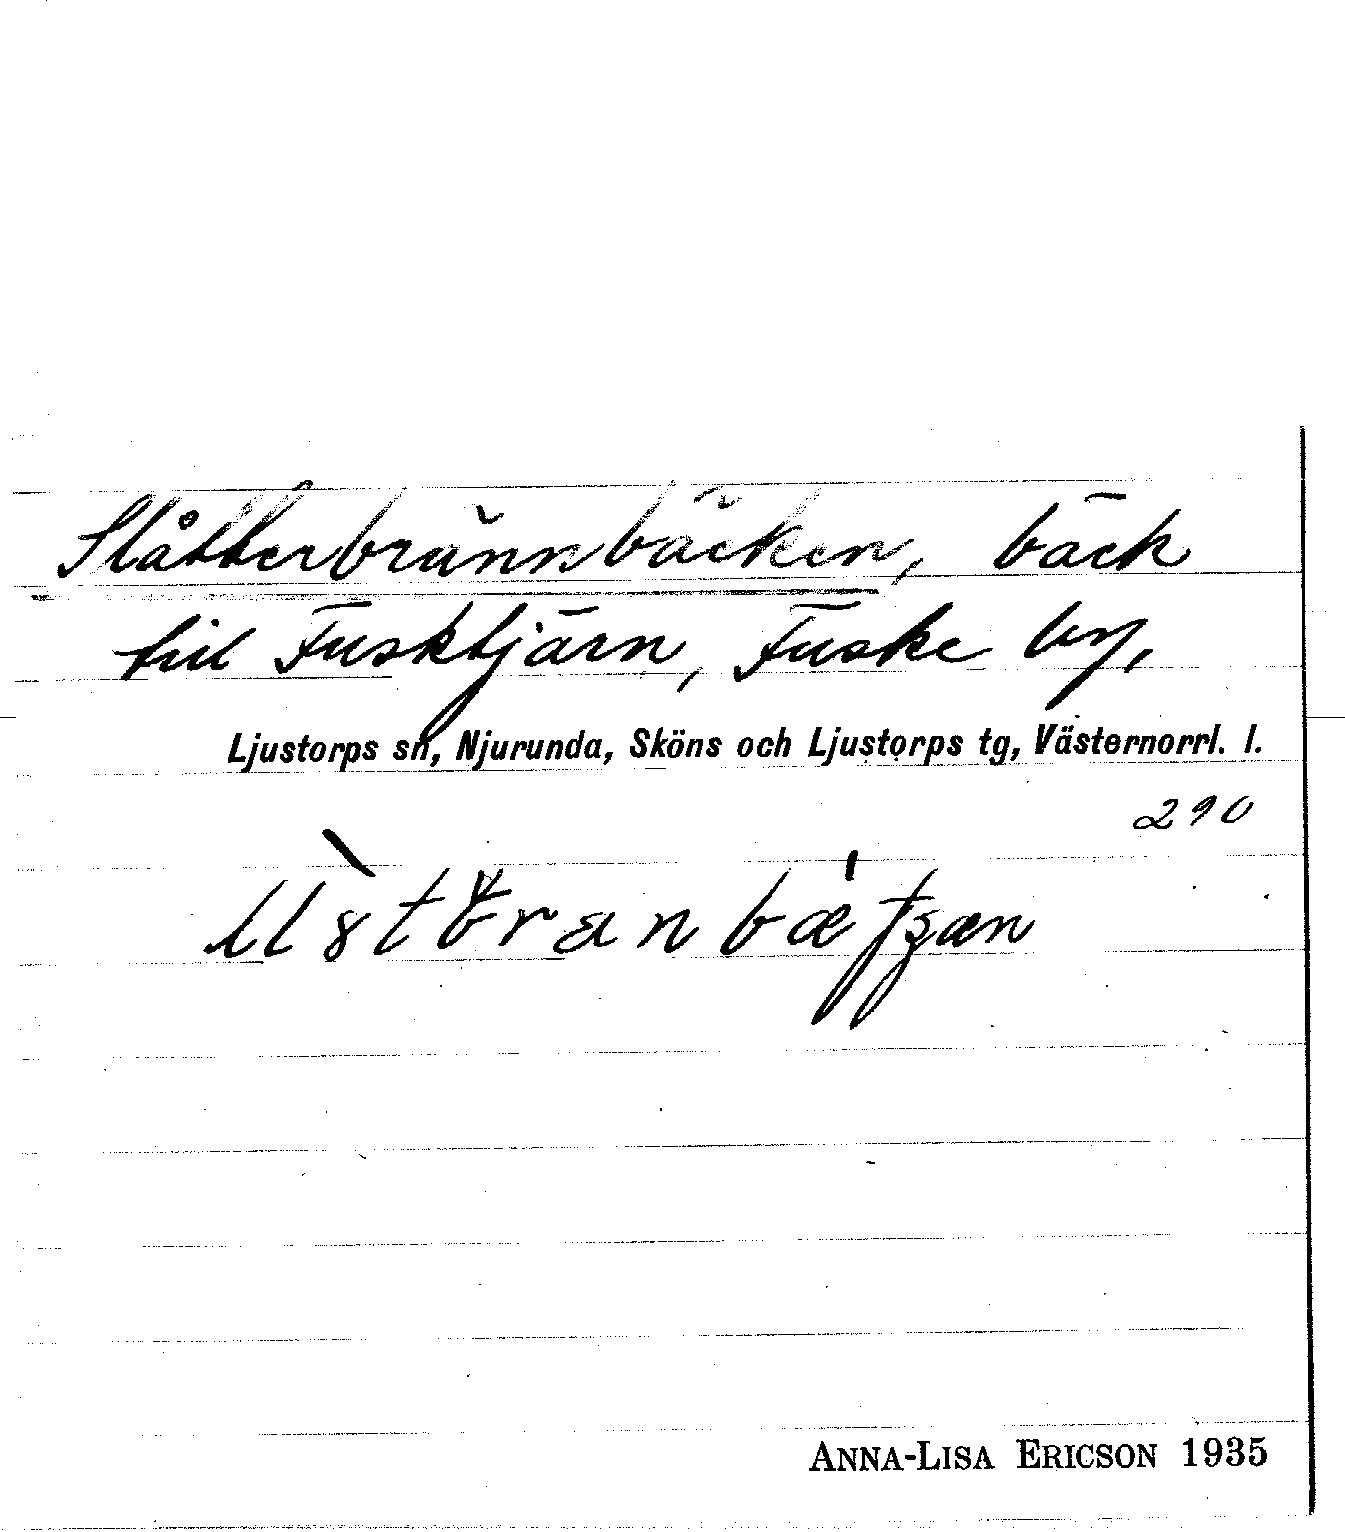 Slåtterbrännbäcken, bäck
till Fusktjärn, Fuske by,
Ljustorps sn, Njurunda, Sköns och Ljustorps tg, Västernorrl. l.
290
ANNA-LISA ERICSON 1935